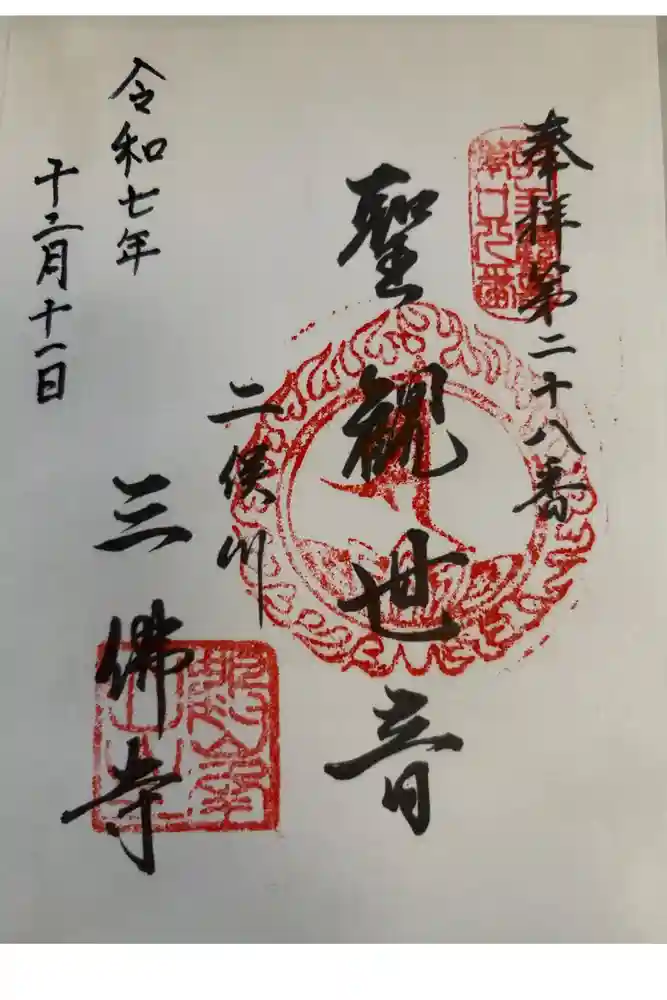 奉拝第二十八番
聖観世音
二俣川
三佛寺
令和七年
十二月十一日